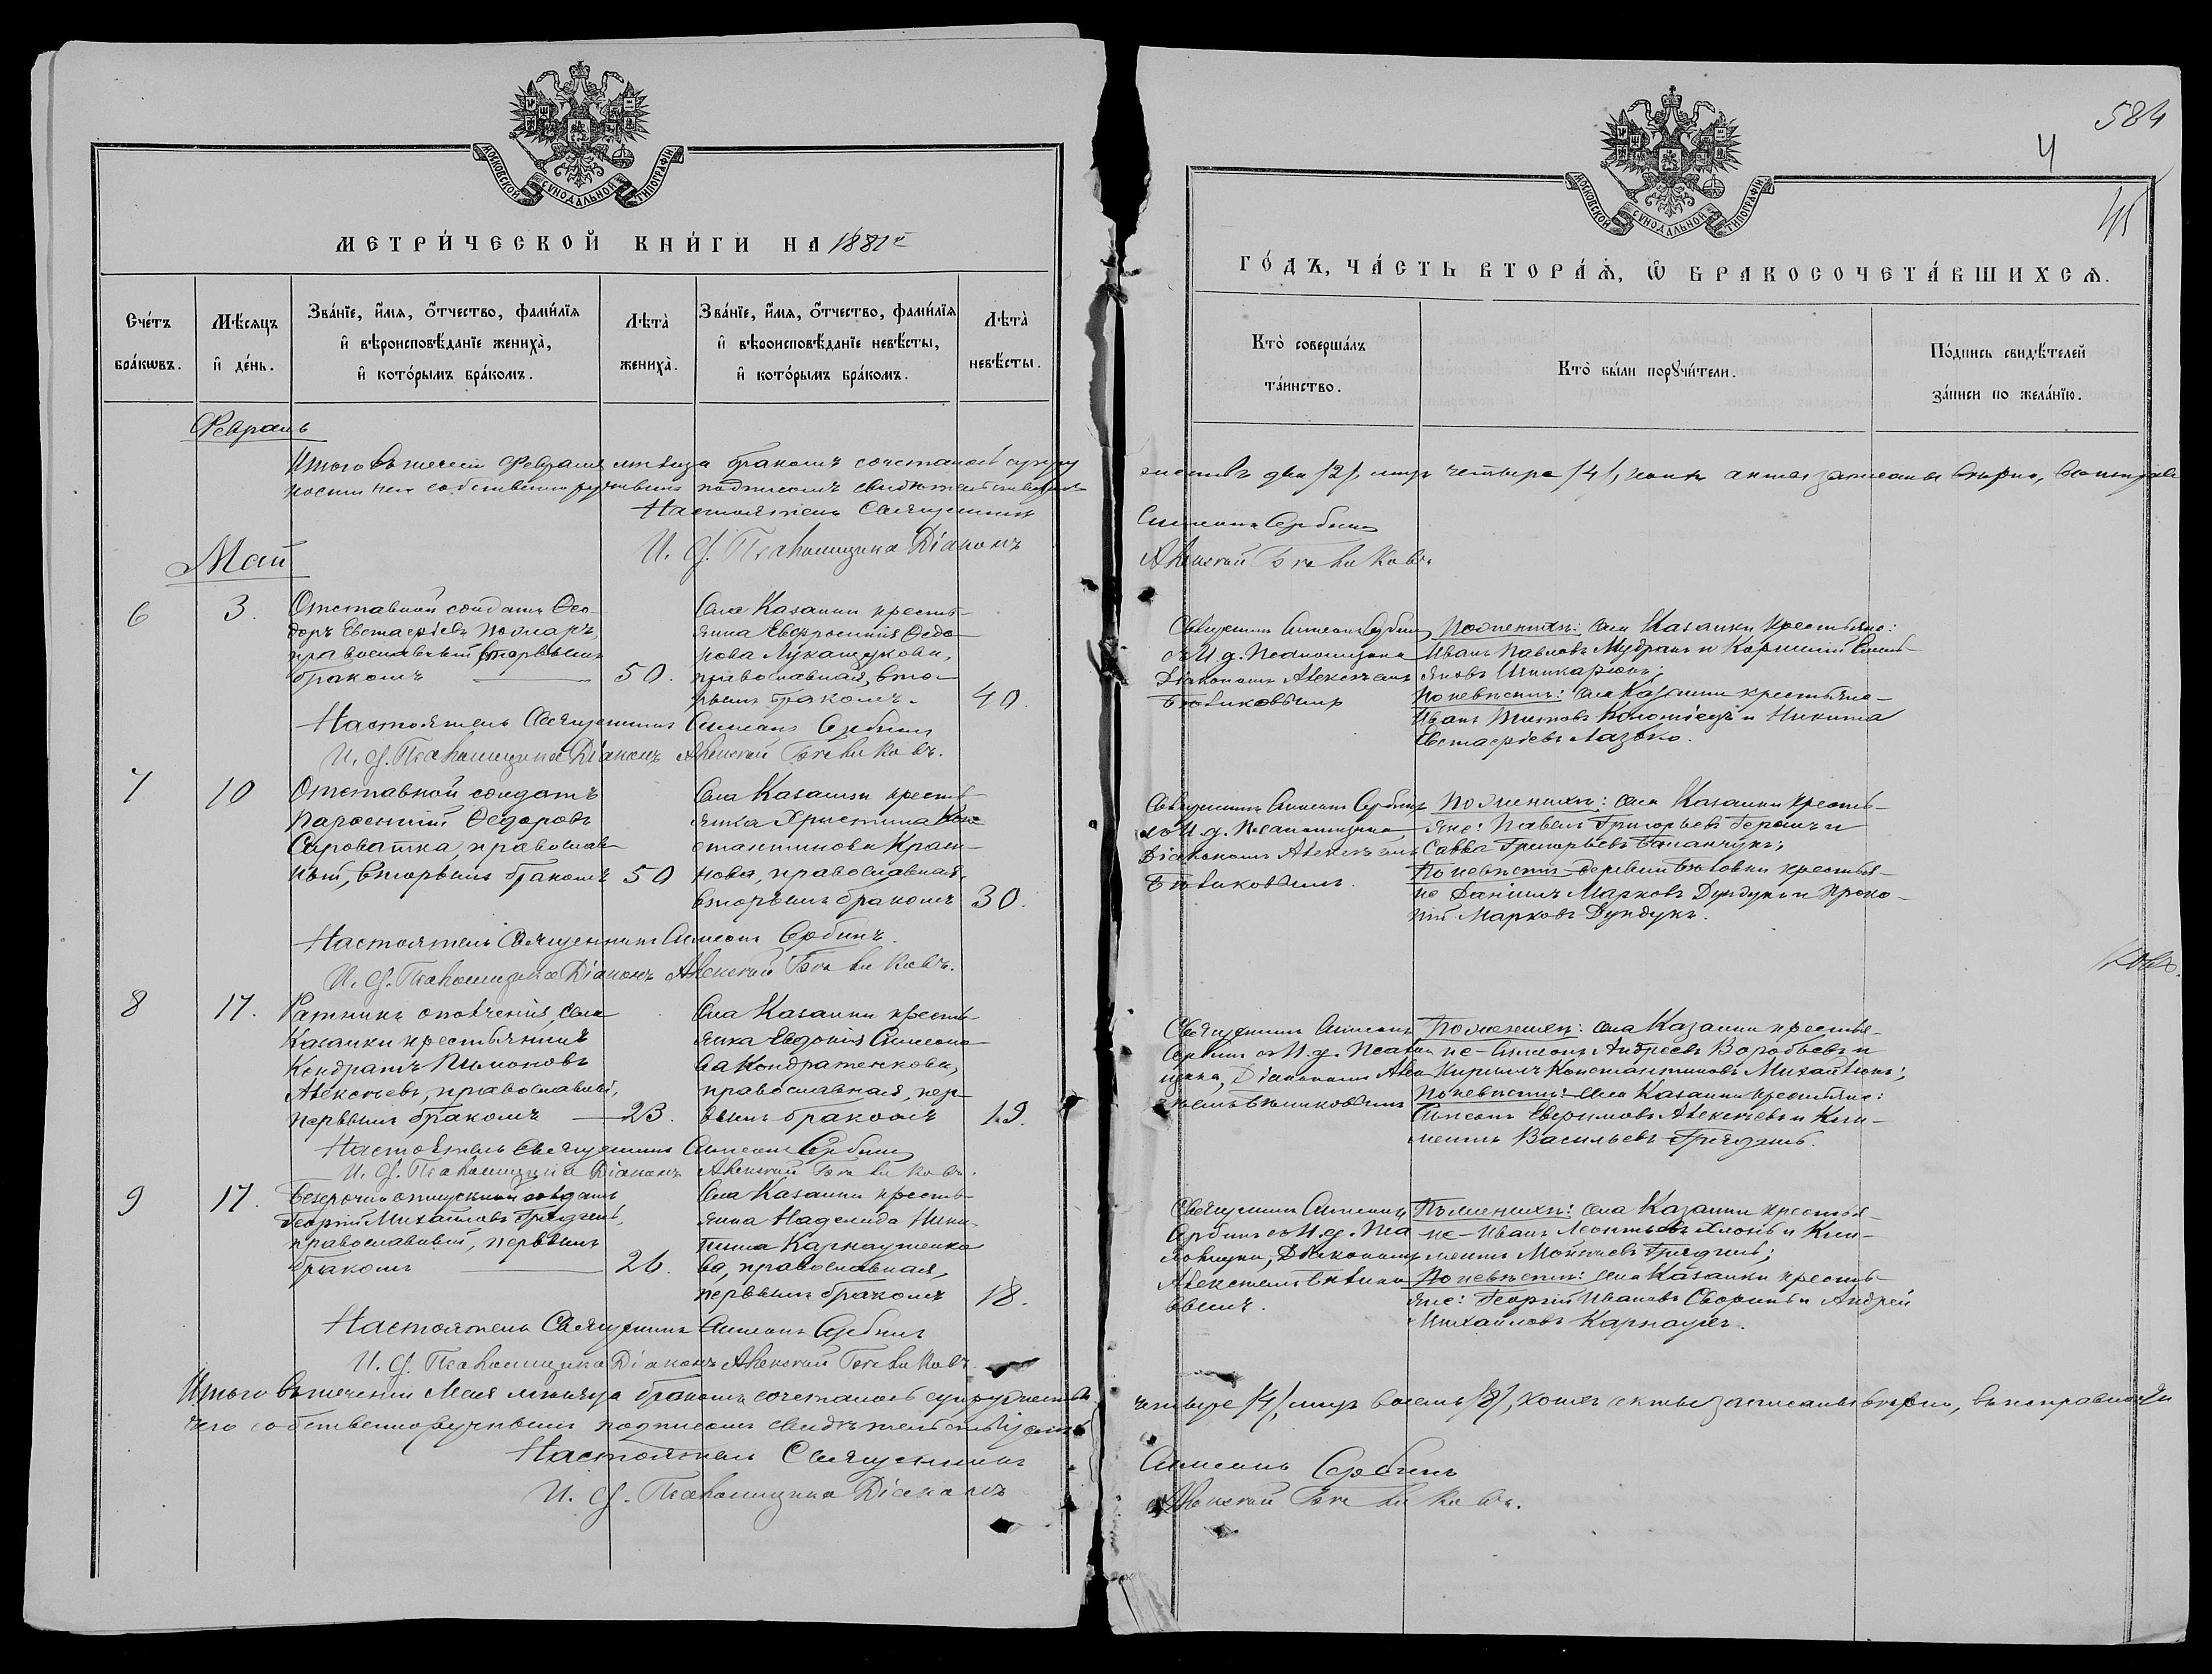 МОСКОВСКОЙ СѴНОДАЛЬНОЙ ТИПОГРАФІИ
МЕТРИ́ЧЕСКОЙ КНИ́ГИ НА 1881й
Счéтъ бра́кѡвъ.
Мѣ́сяцъ и҆ де́нь.
Зва́нїе, и҆́мѧ, ѻ҆́тчество, фами́лїѧ
и҆ вѣроисповѣ́данїе жениха̀,
и҆ кото́рымъ бра́комъ.
Лѣта̀ жениха̀.
Зва́нїе, и҆́мѧ, ѻ҆́тчество, фами́лїѧ
и҆ вѣроисповѣ́данїе невѣ́сты,
и҆ кото́рымъ бра́комъ.
Лѣта̀ невѣ́сты.
Февраль
Итого въ течении Февраля мѣсяца бракомъ сочеталось супру
ности чего собственноручнымъ подписомъ свидѣтельствуемъ
Настоятель Священникъ
И. д. Псаломщика Діаконъ
Май
6
3.
Отставной солдатъ Ѳео-
доръ Евстафіевъ
православный вторымъ
бракомъ
50.
Села Казанки кресть-
янка Евфросинія Ѳедо-
рова Лукашукова,
православная, вто-
рымъ бракомъ.
40.
Настоятель Священникъ Симеонъ Сербинъ
И. д. Псаломщика Діаконъ Алексѣй
7
10
Отставной солдатъ
Парфеній Ѳедоровъ
Сыроватка, православ-
ный, вторымъ бракомъ
50
Села Казанки кресть-
янка Христина Кон-
стантинова Крас-
нова, православная,
вторымъ бракомъ
30.
Настоятель Священникъ Симеонъ Сербинъ.
И. д. Псаломщика Діаконъ Алексѣй
8
17.
Ратникъ ополченія, села
Казанки крестьянинъ
Кондратъ Пимоновъ
Алексѣевъ, православный,
первымъ бракомъ
23.
Села Казанки кресть-
янка Евдокія Симеоно-
ва Кондратенкова,
православная, пер-
вымъ бракомъ
19.
Настоятель Священникъ Симеонъ Сербинъ
И. д. Псаломщика Діаконъ Алексѣй
9
17.
Безсрочно отпускной солдатъ
Георгій Михайловъ
православный, первымъ
бракомъ
26.
Села Казанки кресть-
янка Надежда Ники-
тина Карнаушенко
ва, православная,
первымъ бракомъ
18.
Настоятель Священникъ Симеонъ Сербинъ
И. д. Псаломщика Діаконъ Алексѣй
Итого въ теченіи Мая мѣсяца бракомъ сочеталось супружествъ
чего собственноручнымъ подписомъ свидѣтельствуемъ
Настоятель Священникъ
И. д. Псаломщика Діаконъ
584
4
МОСКОВСКОЙ СѴНОДАЛЬНОЙ ТИПОГРАФІИ
ГО́ДЪ, ЧА́СТЬ ВТОРА́Ѧ, Ѡ҆ БРАКОСОЧЕТА́ВШИХСѦ.
Кто̀ соверша́лъ та́инство.
Кто̀ бы́ли порꙋчи́тели.
По́дпись свидѣ́телей
за́писи по жела́нїю.
жествъ два /2/, лицъ четыре /4/, акты записаны вѣрно,
Симеонъ Сербинъ
Алексѣй
Священникъ Симеонъ Сербинъ
съ И. д. Псаломщика
Діакономъ Алексѣемъ
По женихѣ: села Казанки крестьяне:
Иванъ Павловъ Мудракъ и Корнилій Емель-
яновъ
По невѣстѣ: села Казанки крестьяне
Иванъ Титовъ Коломіецъ и Никита
Евстафіевъ Лазько.
Священникъ Симеонъ Сербинъ
съ И. д. Псаломщика
Діакономъ Алексѣемъ
По женихѣ: села Казанки кресть-
яне: Павелъ Григорьевъ и
Савва Григорьевъ
По невѣстѣ деревни крестья-
не Даніилъ Марковъ Дундукъ и Проко-
пій Марковъ Дундукъ.
Священникъ Симеонъ
Сербинъ съ И. д. Псалом
щика, Діакономъ Алек
По женихѣ: села Казанки крестья-
не Симеонъ Андреевъ Воробьевъ и
Кириллъ Константиновъ Михайлюкъ;
По невѣстѣ: села Казанки крестьяне:
Симеонъ Ефимовъ Алексѣевъ и Кли-
ментъ Васильевъ
Священникъ Симеонъ
Сербинъ съ И. д. Пса
ломщика, Діакономъ
По женихѣ: села Казанки крестья-
не Иванъ Леонтьевъ и Кли-
ментъ Моисеевъ
По невѣстѣ: села Казанки кресть-
яне: Георгій Ивановъ и Андрей
Михайловъ Карнаухъ.
четыре /4/, лицъ восемь /8/, акты записаны вѣрно,
Симеонъ Сербинъ
Алексѣй